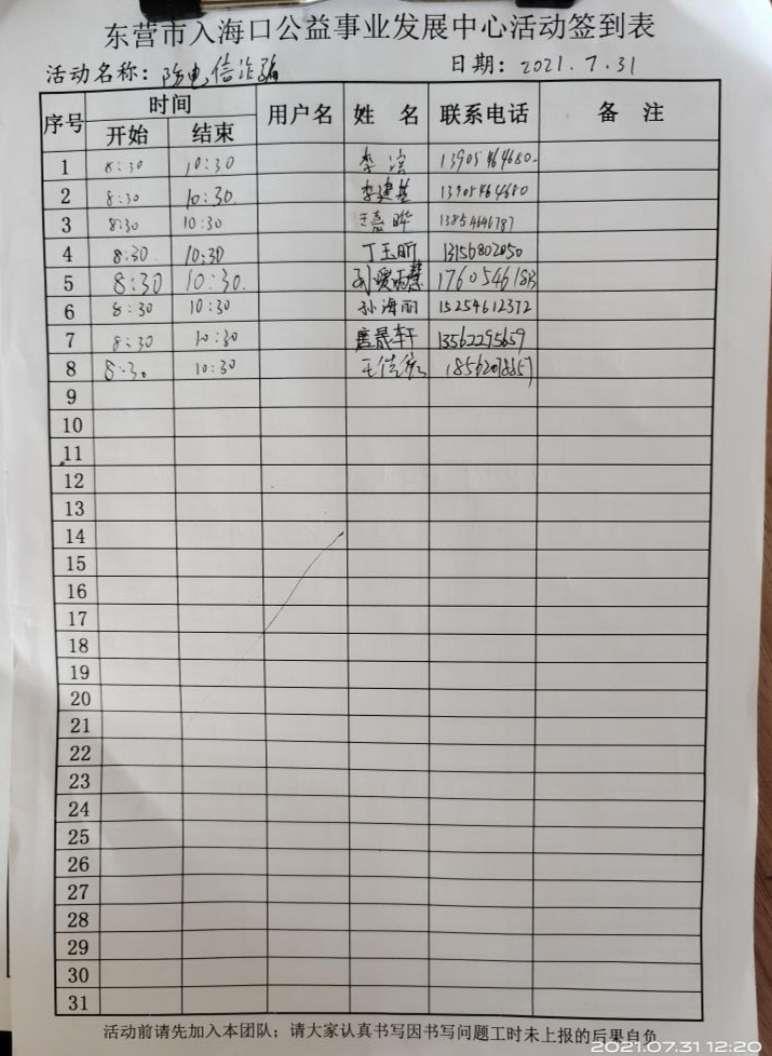 东营市入海口公益事业发展中心活动签到表
活动名称：防电信诈骗 日期：2021.7.31
序号 时间 用户名 姓 名 联系电话 备 注
开始 结束
1 8:30 10:30 李滨 13905464680
2 8:30 10:30 李建基 13905464680
3 8:30 10:30 13854646787
4 8:30 10:30 丁玉昕 13156802050
5 8:30 10:30
6 8:30 10:30 孙海丽 15254612372
7 8:30 10:30 唐晟轩 13562295659
8 8:30 10:30
9
10
11
12
13
14
15
16
17
18
19
20
21
22
23
24
25
26
27
28
29
30
31
活动前请先加入本团队；请大家认真书写因书写问题工时未上报的后果自负
2021.07.31 12:20